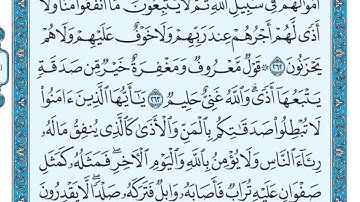 أَمْوَٰلَهُمْ فِي سَبِيلِ ٱللَّهِ ثُمَّ لَا يُتْبِعُونَ مَآ أَنفَقُوا۟ مَنًّا وَلَآ
أَذًى لَّهُمْ أَجْرُهُمْ عِندَ رَبِّهِمْ وَلَا خَوْفٌ عَلَيْهِمْ وَلَا هُمْ
يَحْزَنُونَ ٢٦٢ ۞ قَوْلٌ مَّعْرُوفٌ وَمَغْفِرَةٌ خَيْرٌ مِّن صَدَقَةٍ
يَتْبَعُهَآ أَذًى وَٱللَّهُ غَنِيٌّ حَلِيمٌ ٢٦٣ يَٰٓأَيُّهَا ٱلَّذِينَ ءَامَنُوا۟
لَا تُبْطِلُوا۟ صَدَقَٰتِكُم بِٱلْمَنِّ وَٱلْأَذَىٰ كَٱلَّذِي يُنفِقُ مَالَهُۥ
رِئَآءَ ٱلنَّاسِ وَلَا يُؤْمِنُ بِٱللَّهِ وَٱلْيَوْمِ ٱلْءَاخِرِ فَمَثَلُهُۥ كَمَثَلِ
صَفْوَانٍ عَلَيْهِ تُرَابٌ فَأَصَابَهُۥ وَابِلٌ فَتَرَكَهُۥ صَلْدًا لَّا يَقْدِرُونَ